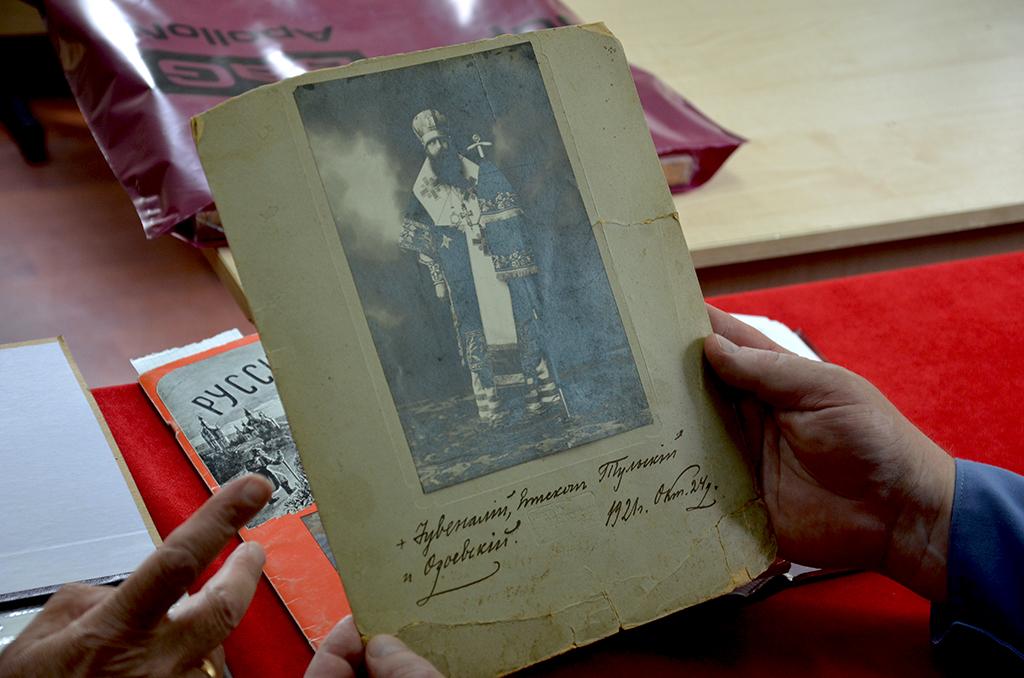 Apollo
РУССК
+ Ювеналій, Епископ Тульскій
и Одоевскій.
1921г. Окт. 24 д.